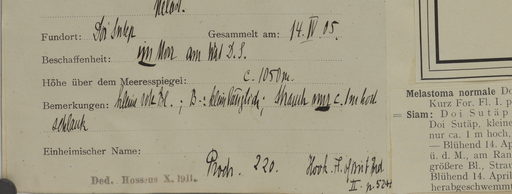 Fundort: Doi Sutep Gesammelt am: 14. IV 05.
Beschaffenheit: im Moor am Wat D. S.
Höhe über dem Meeresspiegel: c. 1050 m.
Bemerkungen: klein rote Bl.; B: Strauch nur c. 1 m hoch
schlank
Einheimischer Name:
Prodr. 220. Hook. f.
II p. 524
Ded. Hosseus X. 1911.
Melastoma normale Do
Kurz For. Fl. I. p
= Siam: Doi Sutäp
Doi Sutäp, kleine
nur ca. 1 m hoch,
— Blühend 14. April
ü. d. M., am Ran
größere Bl., Strau
Blühend 14. April
herabgeschwemm